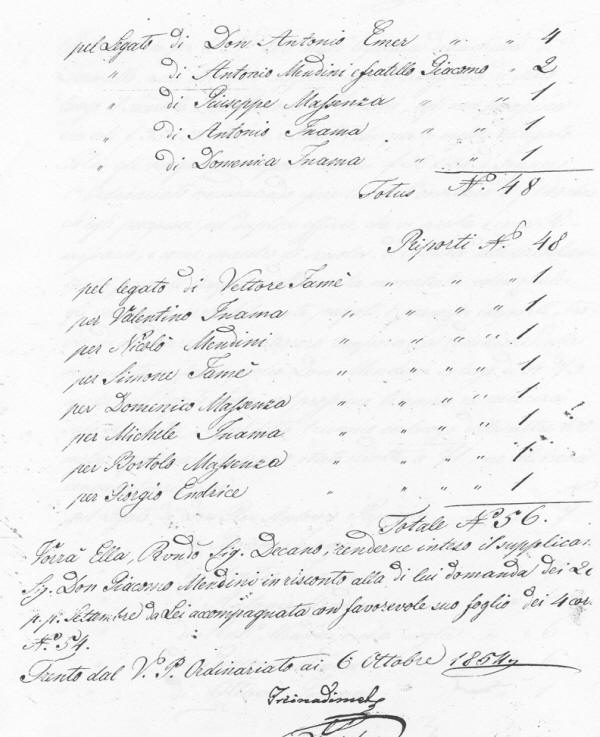 pel Legato di Don Antonio Emer " " 4
" di Antonio Mendini (fratello Giacomo " 2
" di Giuseppe Massenza " " 1
" di Antonio Inama " " 1
" di Domenica Inama " " 1
Totus N.º 48
Riporti N.º 48
pel legato di Vettore Tamè " " " 1
per Valentino Inama " " " 1
per Nicolò Mendini " " " 1
per Simone Tamè " " " 1
per Dominico Massenza " " " 1
per Michele Inama " " " 1
per Bortolo Massenza " " " 1
per Giorgio Endrice " " " 1
Totale N.º 56.
Vorrà Ella, Rendo Sig. Decano, renderne inteso il supplican.
Sig. Don Giacomo Mendini in risconto alla di lui domanda dei 2
p. p. Settembre da Lei accompagnata con favorevole suo foglio dei 4 cor.
N.º 54.
Trento dal V. P. Ordinariato ai 6 Ottobre 1854